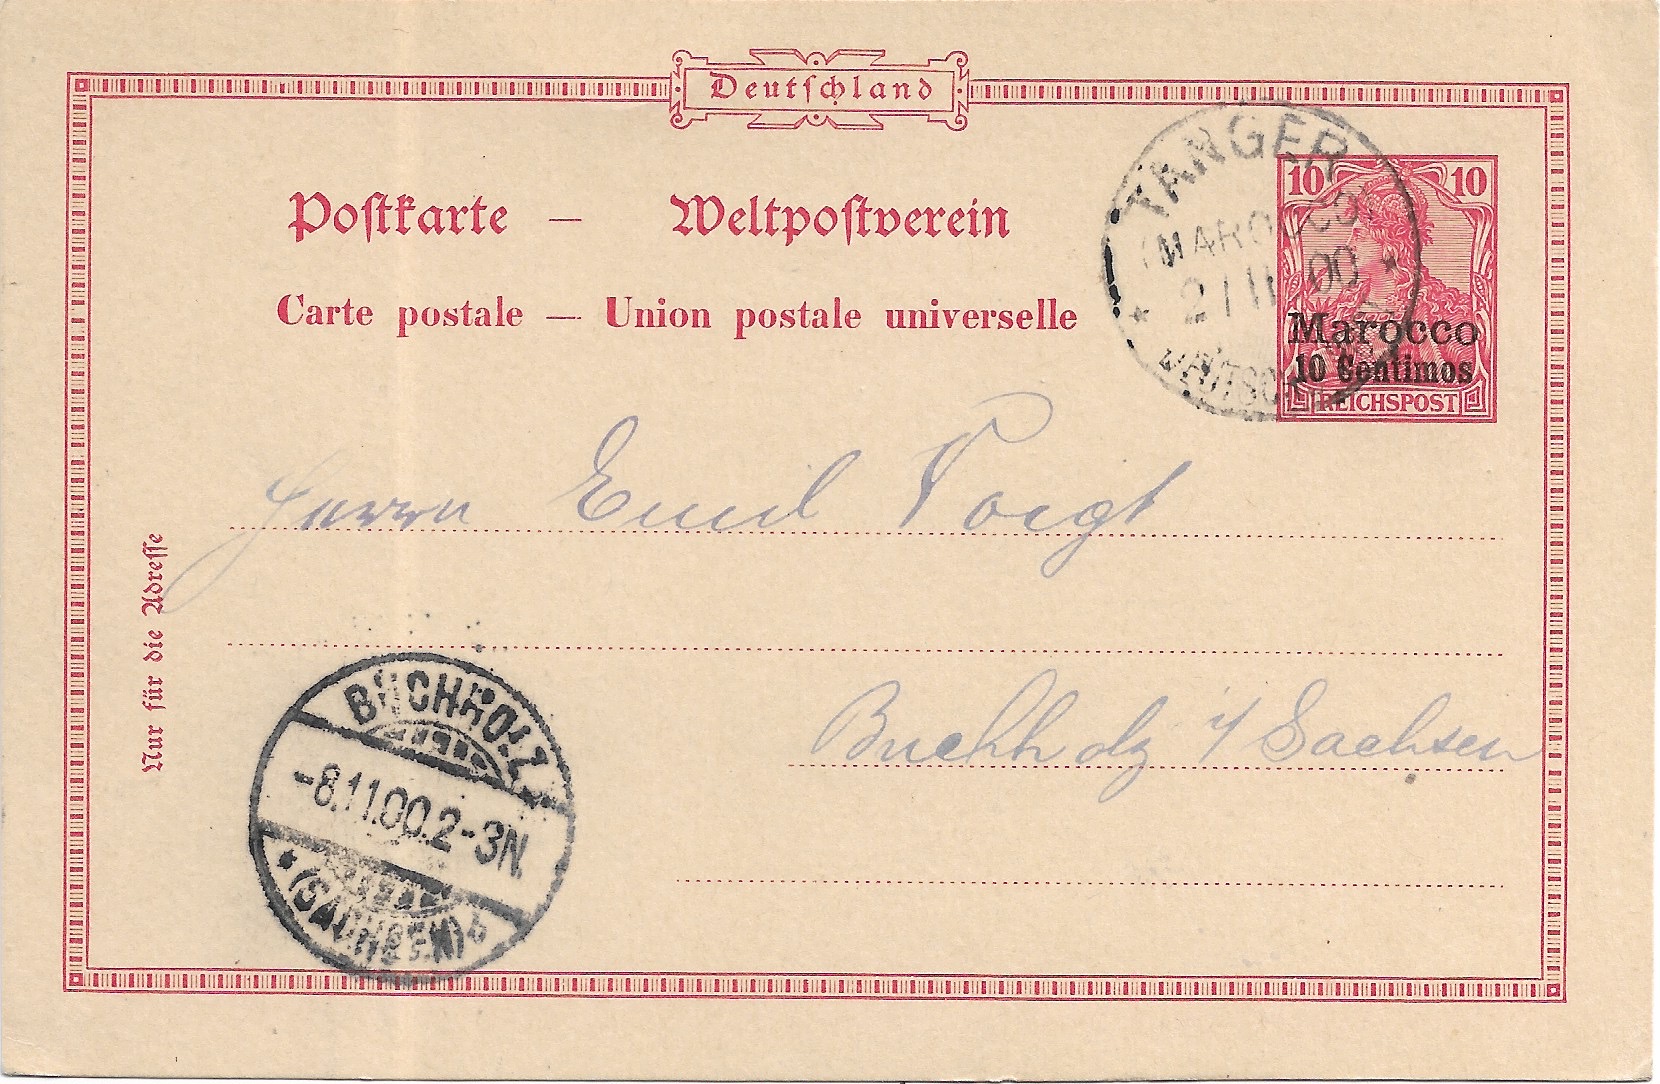 Deutschland
Postkarte — Weltpostverein
Carte postale — Union postale universelle
10 10
Marocco
10 Centimos
REICHSPOST
TANGER
(MAROCCO)
2/11 00
DEUTSCHE
Herrn Emil Voigt
Buchholz i/ Sachsen
Nur für die Adresse
BUCHHOLZ
-8.11.00.2-3N.
* (SACHSEN) b